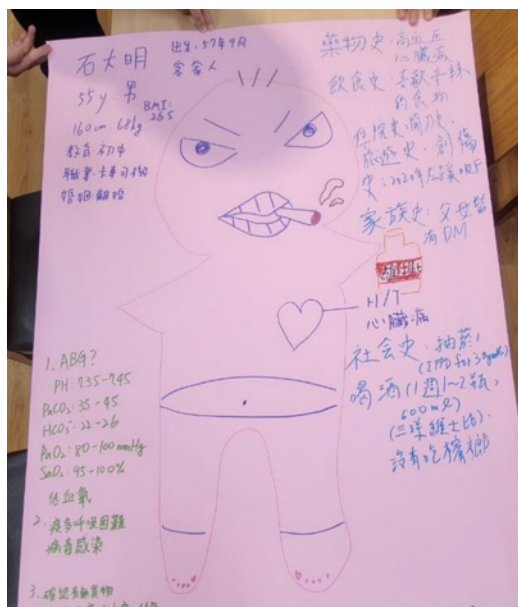 石大明
出生：57年9月
客家人
55y. 男
BMI:
26.5
160cm 68kg
教育：初中
職業：卡車司機
婚姻：離婚
藥物史：高血压
心臟病
飲食史：喜歡辛辣
的食物
住院史、開刀史、
旅遊史、創傷
史：2020年左蹠
家族史：父母皆
有DM
H/T
心臟病
社会史：抽菸
喝酒(1週1~2瓶,
600ml)
(三洋維士比).
沒有吃檳榔
1. ABG?
PH: 7.35-7.45
PaCO2: 35-45
HCO3: 22-26
PaO2: 80-100mmHg
SaO2: 95-100%
低血氧
2. 痰多呼吸困難
病毒感染
3. 確認有無異物